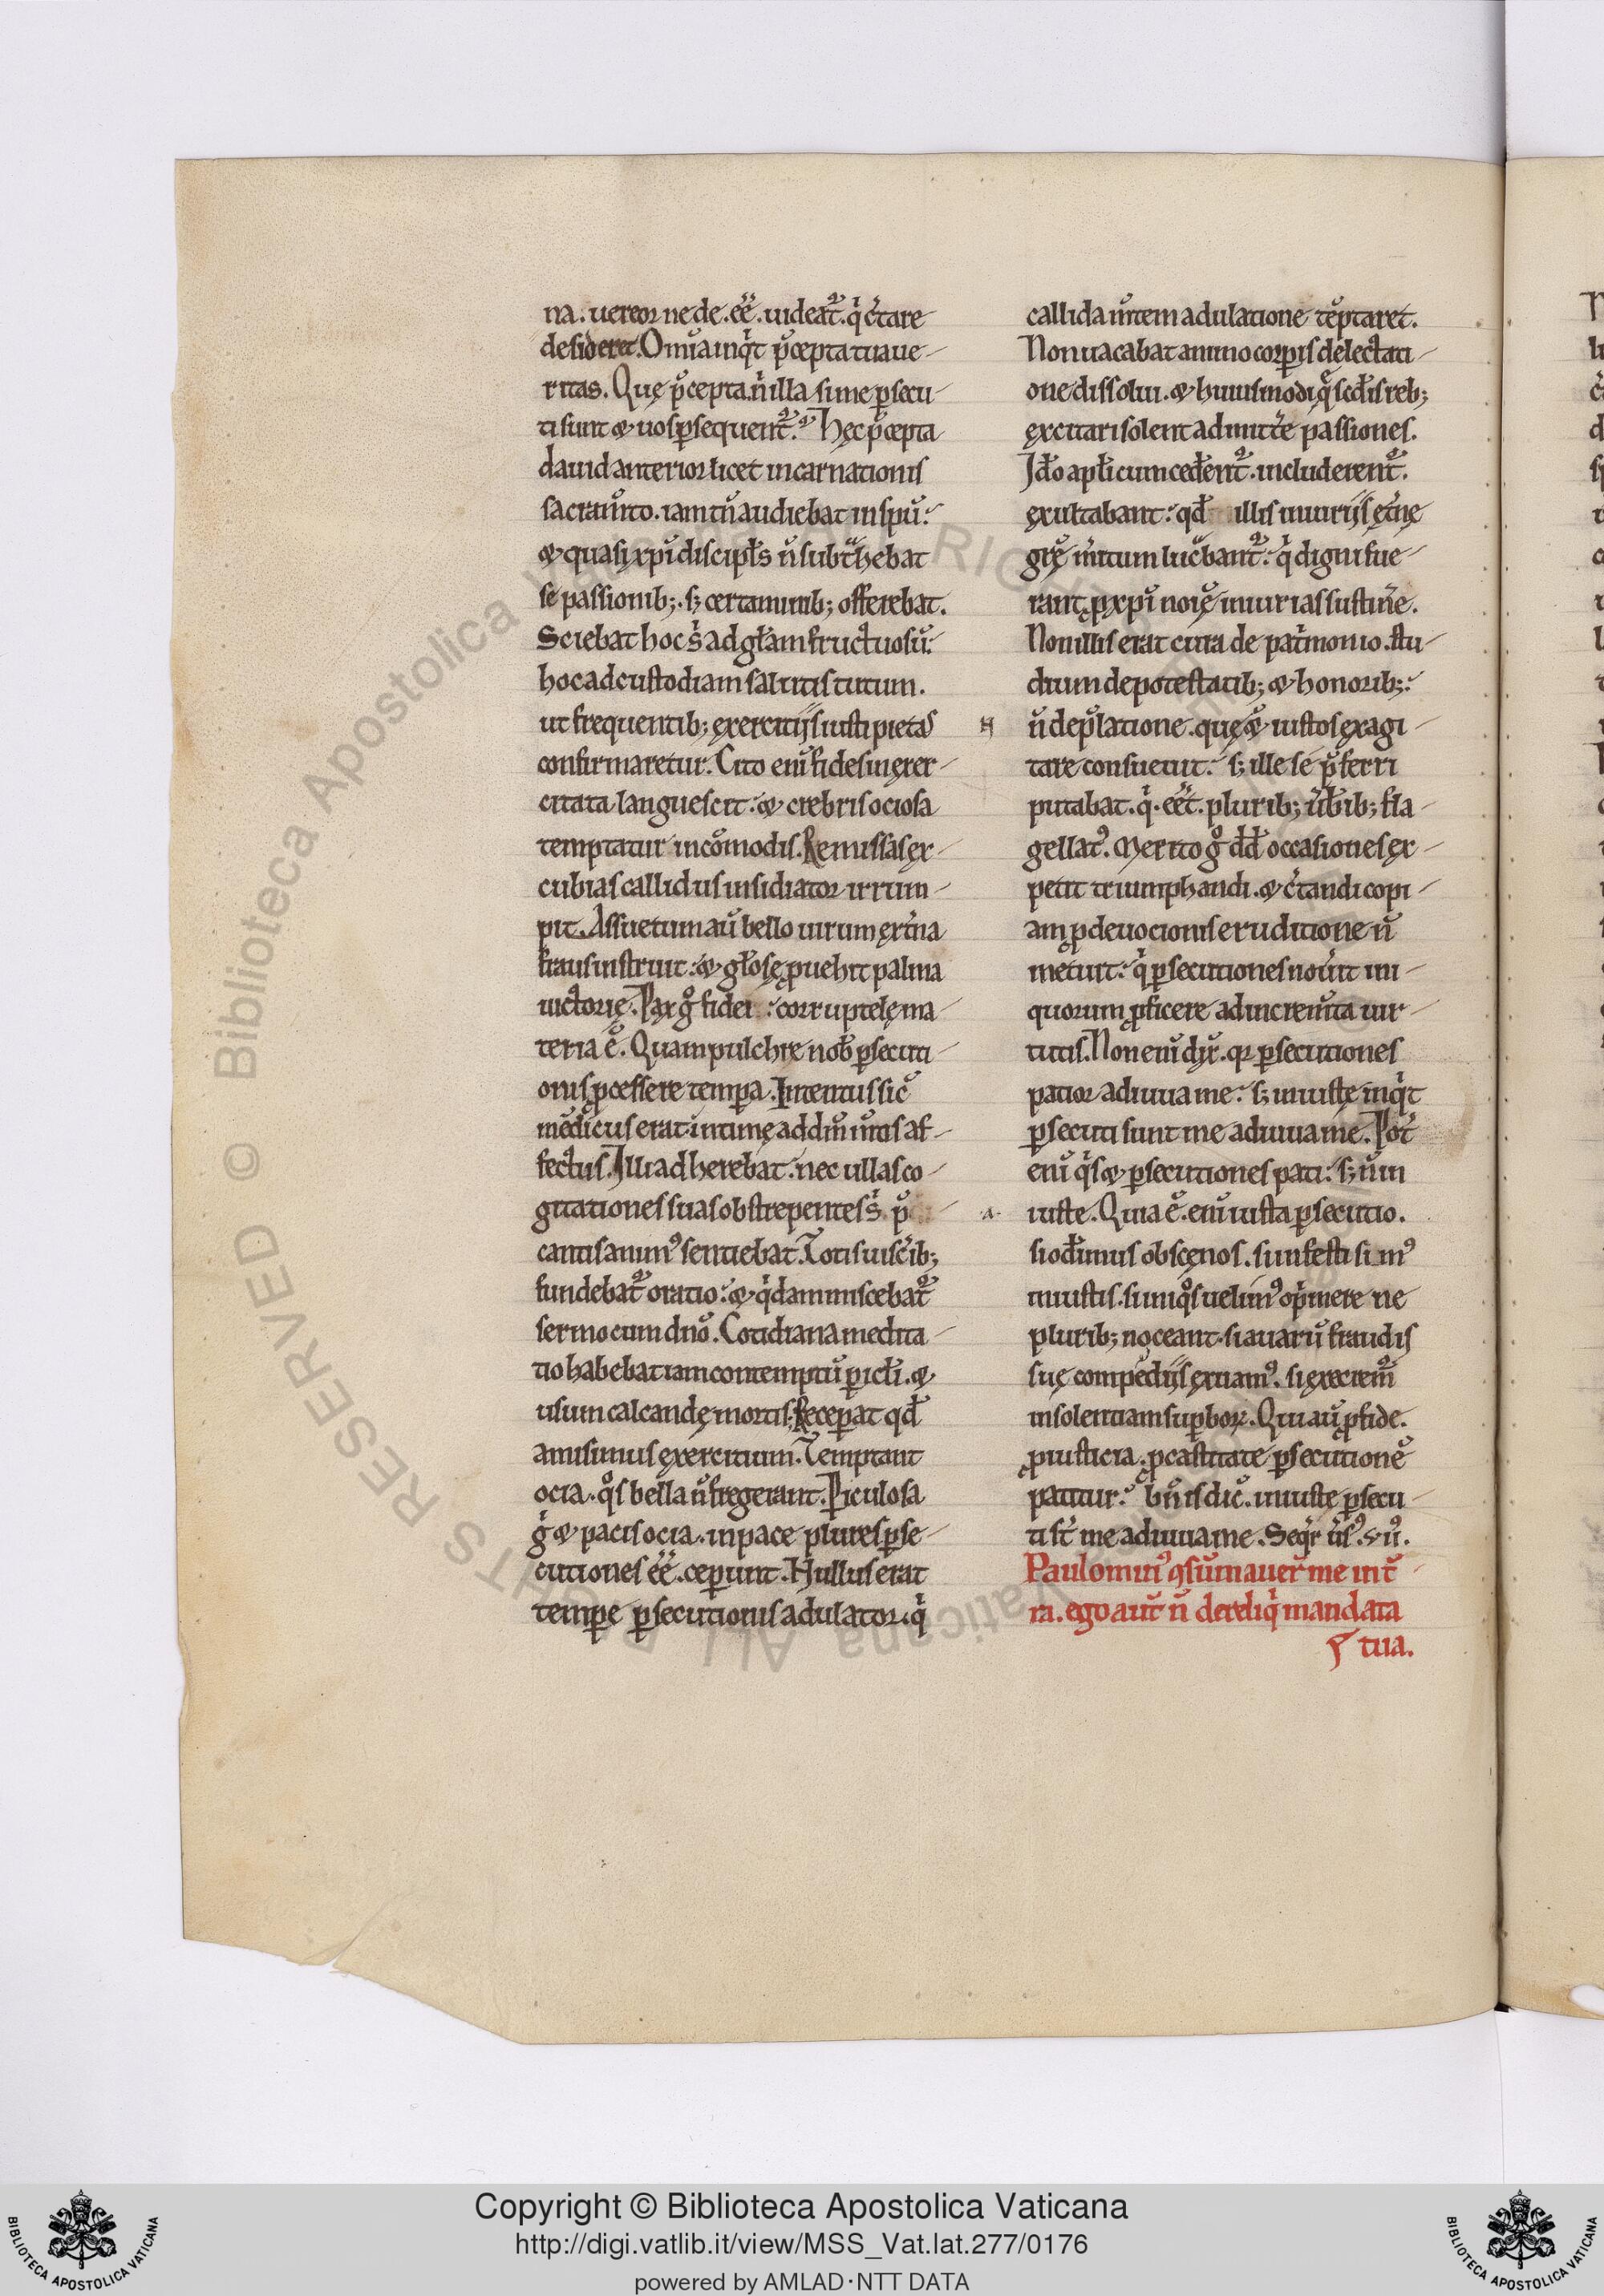 na. uereor ne de. ee̅. uideat̃. q̇ c̃tare
desideret. Om̅ia inq̇t p̃cepta tua ue-
ritas. Quę p̃cepta. n̅ illa si me ꝑsecu-
ti sunt & uos ꝑsequent̃. & Hęc p̃cepta
dauid anterior licet incarnationis
sacram̅to. iam tn̅ audiebat in spu̅.
& quasi xp̅i discipl̅s n̅ subt̃hebat
se passionib;. sꝫ certaminib; offerebat.
Sciebat hoc s̓ ad gl̅am fructuosu̅.
hoc ad custodiam salutis tutum.
ut frequentib; exercitijs iusti pietas
confirmaretur. Cito eni̅ fides inexer-
citata languescit. & crebris ociosa
temptatur inco̅modis. Remissas ex-
cubias callidus insidiator irrum-
pit. Assuetum au̅ bello uirum ext̃na
fraus instruit. & gl̅osę ꝓuehit palma
uictorię. Pax g̊ fidei corruptelę ma-
teria e̅. Quam pulchre nob̅ ꝑsecuti-
onis ꝓcessere tempa. Intentus sic̅
medicus erat intimę ad dm̅ m̅tis af-
fectus. Illi adherebat. nec ullas co-
gitationes suas obstrepentes s̓ p̃
cantis anim⁹ sentiebat. Totis uisc̃ib;
fundebat̃ oratio. & q̇dam miscebat̃
sermo cum dn̅o. Cotidiana medita-
tio habebat iam contemptu̅ ꝑicl̅i. &
usum calcandę mortis. Receꝑat qd̅
amisimus exercitium. Temptant
ocia. q̊s bella n̅ fregerant. Piculosa
g̓ & pacis ocia. in pace plures ꝑse-
cutiones ee̅. ceꝑunt. Nullus erat
tempe ꝑsecutionis adulator. q̇
callida m̅tem adulatione te̅ptaret.
Non uacabat animo corꝑis delectati-
one dissolui. & huiusmodi q̃ sed̅is reb;
excitari solent admitt̃e passiones.
Id̅o apl̅i cum ced̃ent̃. includerent̃.
exultabant. qd̅ illis iniurijs et̃nę
gr̅ę m̃itum luc̃bant̃. q̇ digni fue-
rant. ꝓ xp̅i no̅ię iniurias sustin̅e.
Non illis erat cura de pat̓monio. stu-
dium de potestatib; & honorib;.
n̅ de p̃latione. quę & iustos exagi-
tare consueuit. sꝫ ille se p̃ferri
putabat. q̇. ee̅t. plurib; ũb̃ib; fla-
gellat⁹. Merito g̊ dd̅ occasiones ex-
petit triumphandi. & c̃tandi copi-
am ꝓ deuocionis eruditione n̅
metuit. q̇ ꝑsecutiones nou̓it ini-
quorum ꝓficere ad increm̅ta uir-
tutis. Non eni̅ dix̅. qꝛ ꝑsecutiones
patior adiuua me. sꝫ iniuste inq̇t
ꝑsecuti sunt me adiuua me. Pot̃
eni̅ q̇s & ꝑsecutiones pati. sꝫ n̅ in
iuste. Quia e̅. eni̅ iusta ꝑsecutio.
si od̃imus obscęnos. si infesti sim⁹
iniustis. si iniq̊s uelim⁹ op̓mere ne
plurib; noceant. si auaru̅ fraudis
suę compendijs exuam⁹. si execrem̃
insolentiam suꝑboꝝ. Qui au̅ ꝓ fide.
ꝓ iusticia. ꝓ castitate ꝑsecutione̅
patitur. bn̅ is dic̅. iniuste ꝑsecu-
ti st̅ me adiuua me. Seqr̅ u̅s⁹. vii̅⁹.
Paulomin⁹ ꝯsu̅mauer̅ me in t̅
ra. ego aut̅ n̅ dereliq̇ mandata
tua.
Copyright © Biblioteca Apostolica Vaticana
http://digi.vatlib.it/view/MSS_Vat.lat.277/0176
powered by AMLAD·NTT DATA
BIBLIOTECA APOSTOLICA VATICANA
BIBLIOTECA APOSTOLICA VATICANA